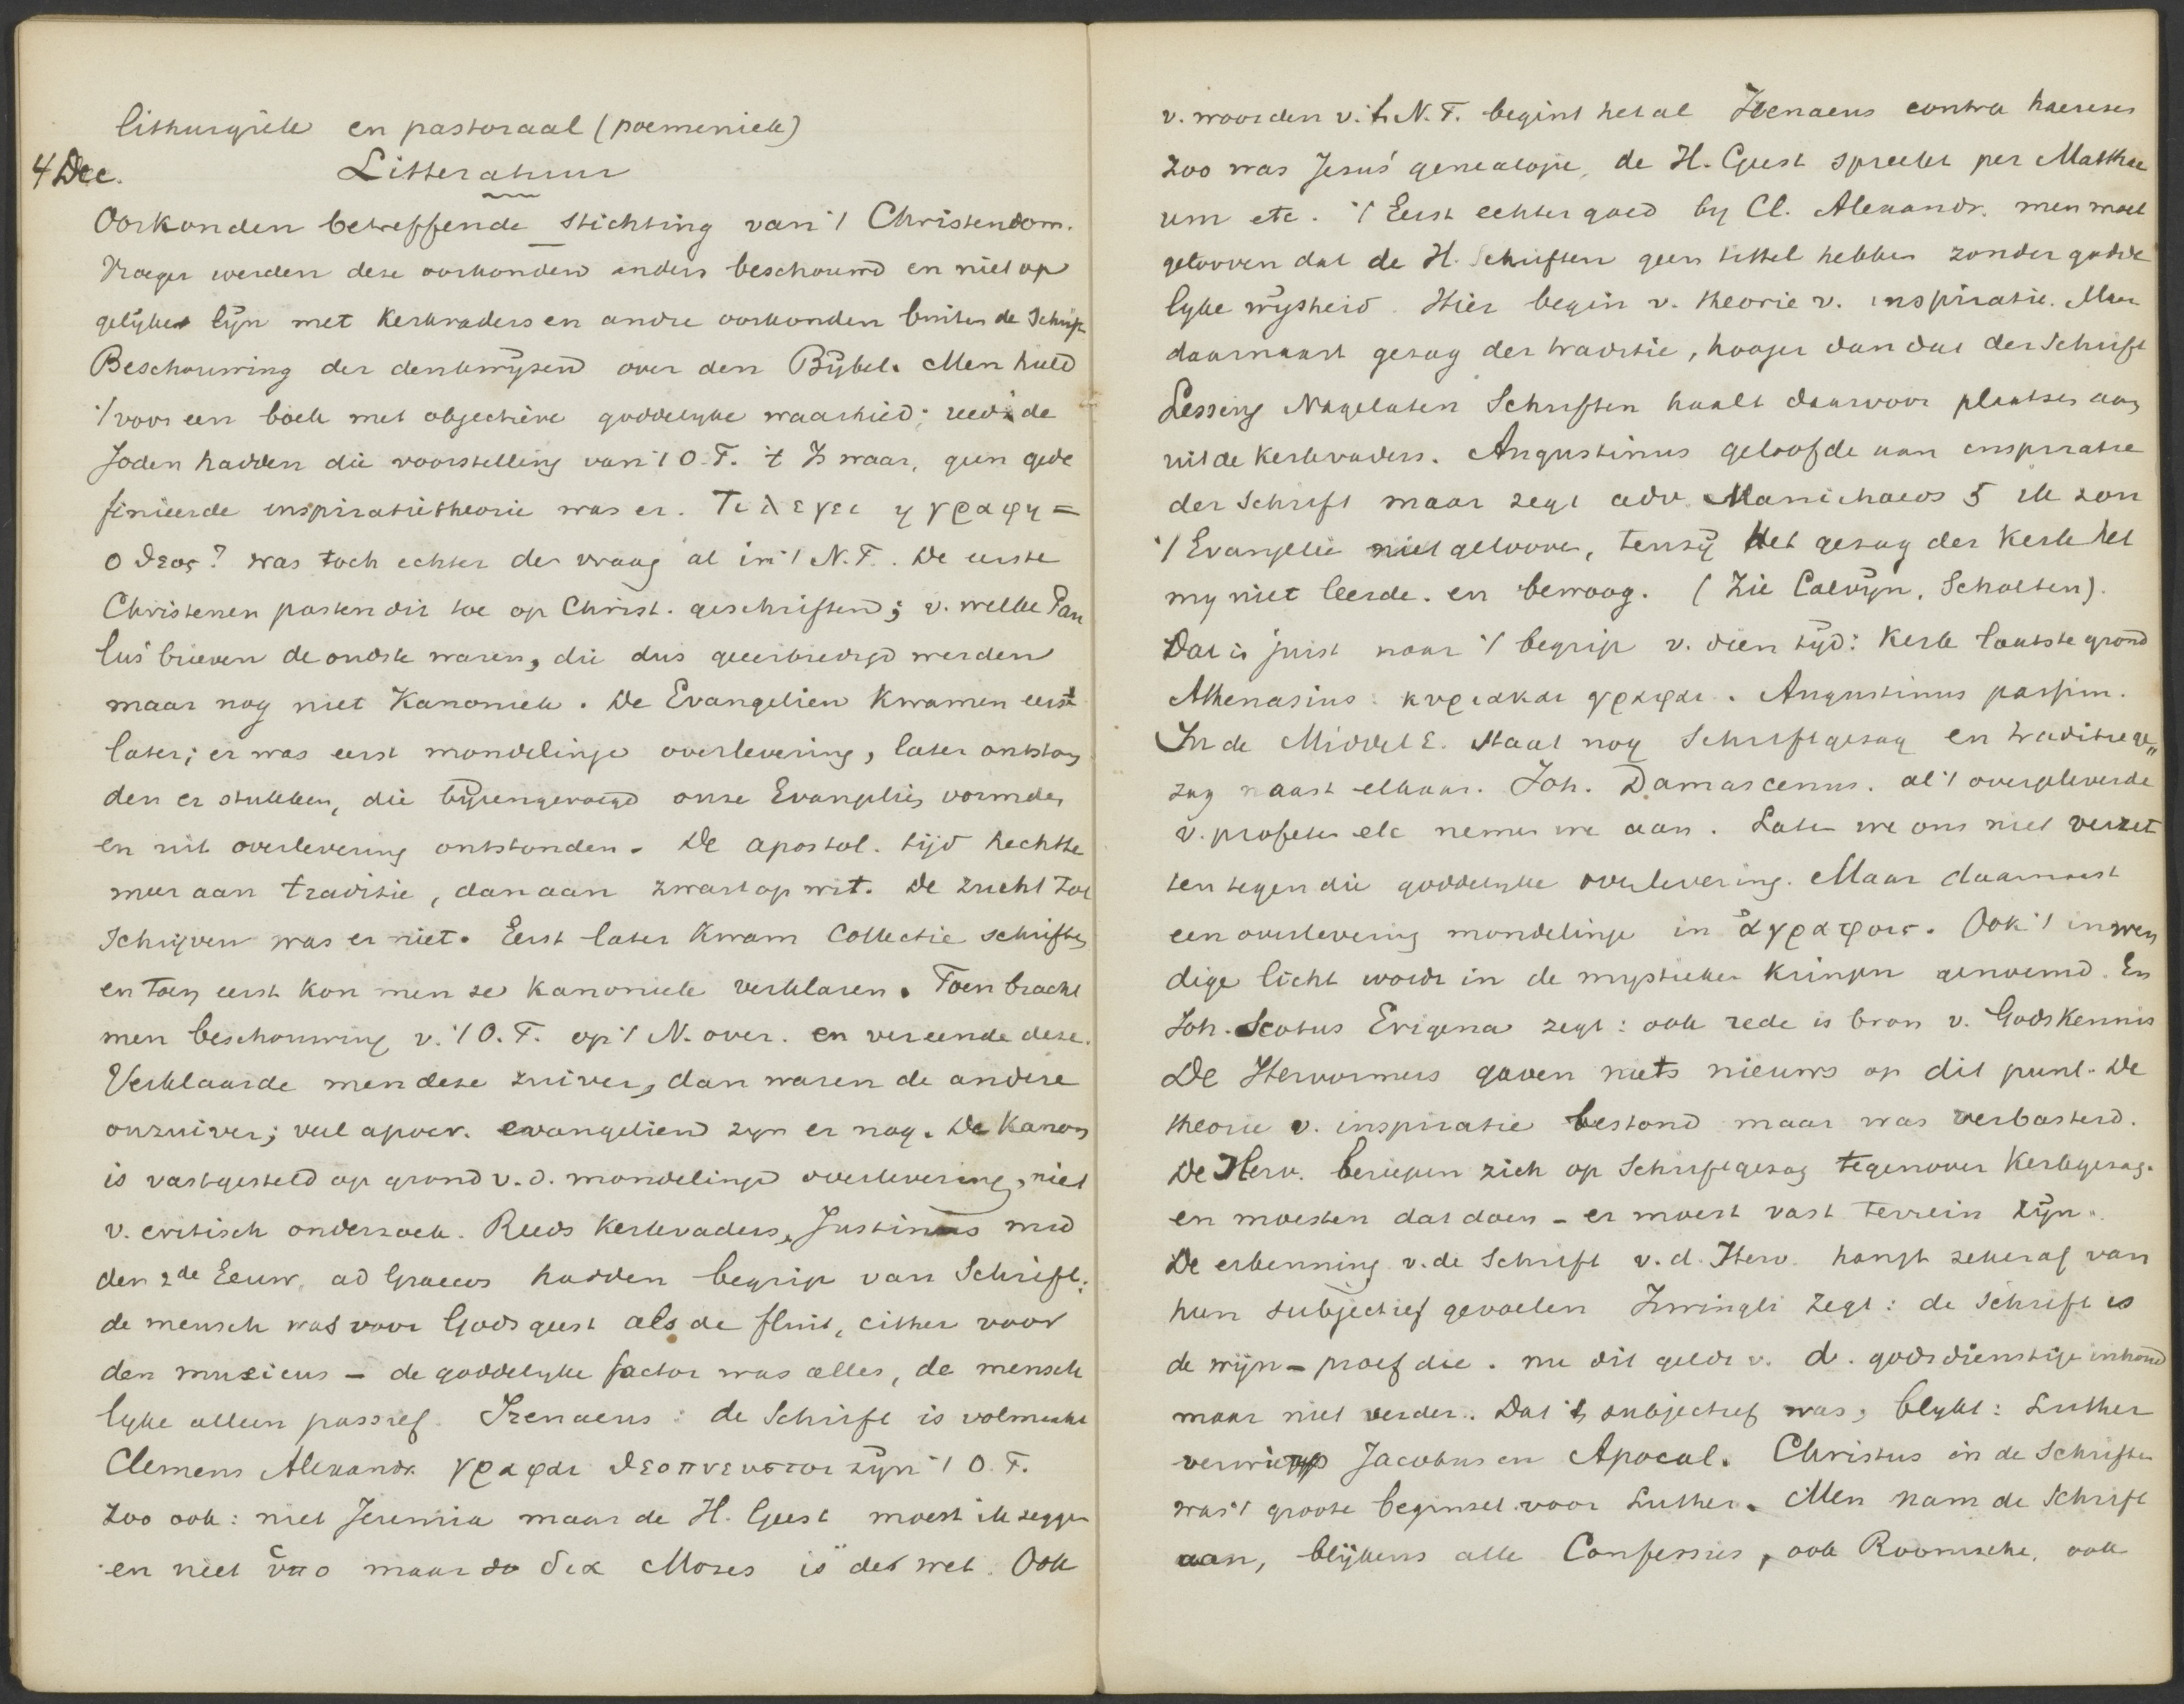 lithurgiek en pastoraal (poemeniek)
4 Dec. Litteratuur
Oorkonden betreffende stichting van 't Christendom.
Vroeger werden deze oorkonden anders beschouwd en niet op
gelijke lijn met kerkvaders en andre oorkonden buiten de Schrift
Beschouwing der denkwijzen over den Bijbel. Men hield
't voor een boek met objectieve goddelyke waarheid; reeds de
Joden hadden die voorstelling van 't O.T. 't Is waar, geen gede
finieerde inspiratietheorie was er. Τι λεγει η γραφη =
ο θεος? was toch echter de vraag al in 't N.T. De eerste
Christenen pasten dit toe op Christ. geschriften; v. welke Pau
lus' brieven de oudste waren, die dus geeerbiedigd werden
maar nog niet Kanoniek. De Evangelien kwamen eerst
later; er was eerst mondelinge overlevering, later ontston
den er stukken, die bijeengevoegd onze Evangelies vormden
en uit overlevering ontstonden. De apostol. tijd hechtte
meer aan traditie, dan aan zwart op wit. De zucht tot
Schrijven was er niet. Eerst later kwam Collectie schriften
en toen eerst kon men ze kanoniek verklaren. Toen bracht
men beschouwing v. 't O.T. op 't N. over. en vereende deze.
Verklaarde men deze zuiver, dan waren de andere
onzuiver; veel apocr. evangelien zyn er nog. De Kanon
is vastgesteld op grond v.d. mondelinge overlevering, niet
v. critisch onderzoek. Reeds Kerkvaders, Justinus mid
den 2de Eeuw, ad Graecos hadden begrip van Schrift:
de mensch was voor Gods geest als de fluit, cither voor
den musicus - de goddelyke factor was alles, de mensch
lyke alleen passief. Irenaeus: de Schrift is volmaakt
Clemens Alexandr. γραφαι θεοπνευστοι zijn 't O.T.
Zoo ook: niet Jeremia maar de H. Geest moest ik zeggen
en niet ὑπο maar do δια Mozes is de wet. Ook
v. woorden v. 't N.T. begint het al Irenaeus contra haereses
Zoo was Jesus' genealogie, de H. Geest spreekt per Matthae
um etc. 't Eerst echter goed by Cl. Alexandr. men moet
gelooven dat de H. Schriften geen tittel hebben zonder godde
lyke wijsheid. Hier begin v. theorie v. inspiratie. Maar
daarnaast gezag der traditie, hooger dan dat der Schrift
Lessing Nagelaten Schriften haalt daarvoor plaatsen aan
uit de kerkvaders. Augustinus geloofde aan inspiratie
der Schrift maar zegt adv. Manichaeos 5 ik zou
't Evangelie niet gelooven, tenzij Het gezag der Kerk het
my niet leerde. en bewoog. (Zie Calvijn, Scholten).
Dat is juist naar 't begrip v. dien tijd: Kerk laatste grond
Athenasius: κυριακαι γραφαι. Augustinus passim.
In de Middel E. staat nog Schriftgezag en traditiege„
zag naast elkaar. Joh. Damascenus. al 't overgeleverde
v. profeten etc nemen we aan. Laten we ons niet verzet
ten tegen die goddelyke overlevering. Maar daarnaast
een overlevering mondelinge in ἀγραφοις. Ook 't inwen
dige licht wordt in de mystieke kringen genoemd. En
Joh. Scotus Erigena zegt: ook rede is bron v. Godskennis
De Hervormers gaven niets nieuws op dit punt. De
theorie v. inspiratie bestond maar was verbasterd.
De Herv. beriepen zich op Schriftgezag tegenover Kerkgezag.
en moesten dat doen - er moest vast terrein zijn.
De erkenning v. de Schrift v.d. Herv. hangt zeker af van
hun subjectief gevoelen Zwingli zegt: de Schrift is
de wijn - proef die. nu dit geldt v. d. godsdienstige inhoud
maar niet verder. Dat 't subjectief was, blykt: Luther
verwierp Jacobus en Apocal. Christus in de Schriften
was 't groote beginsel voor Luther. Men nam de Schrift
aan, blijkens alle Confessies, ook Roomsche, ook